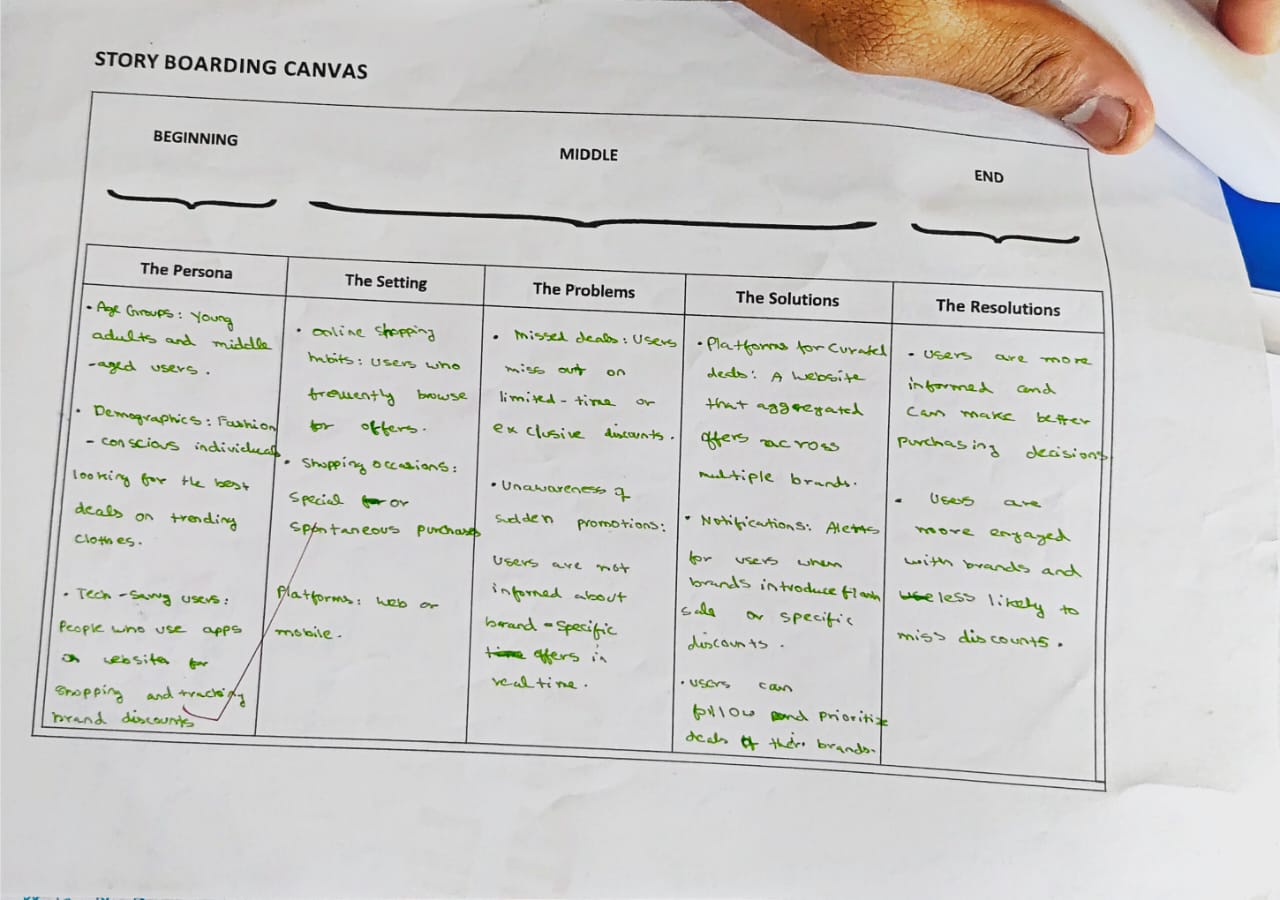 STORY BOARDING CANVAS
BEGINNING
MIDDLE
END
The Persona
• Age Groups: Young
adults and middle
-aged users.
• Demographics: Fashion
- conscious individuals
looking for the best
deals on trending
clothes.
• Tech-savvy users:
People who use apps
or websites for
shopping and tracking
brand discounts
The Setting
• online shopping
habits: users who
frequently browse
for offers.
• Shopping occasions:
Special or
spontaneous purchases
Platforms: web or
mobile.
The Problems
• Missed deals: Users
miss out on
limited-time or
exclusive discounts.
• Unawareness of
sudden promotions:
users are not
informed about
brand-specific
offers in
real time.
The Solutions
• Platforms for Curated
deals: A website
that aggregated
offers across
multiple brands.
• Notifications: Alerts
for users when
brands introduce flash
sale or specific
discounts.
• users can
follow and prioritize
deals of their brands.
The Resolutions
• Users are more
informed and
can make better
purchasing decisions
• Users are
more engaged
with brands and
less likely to
miss discounts.